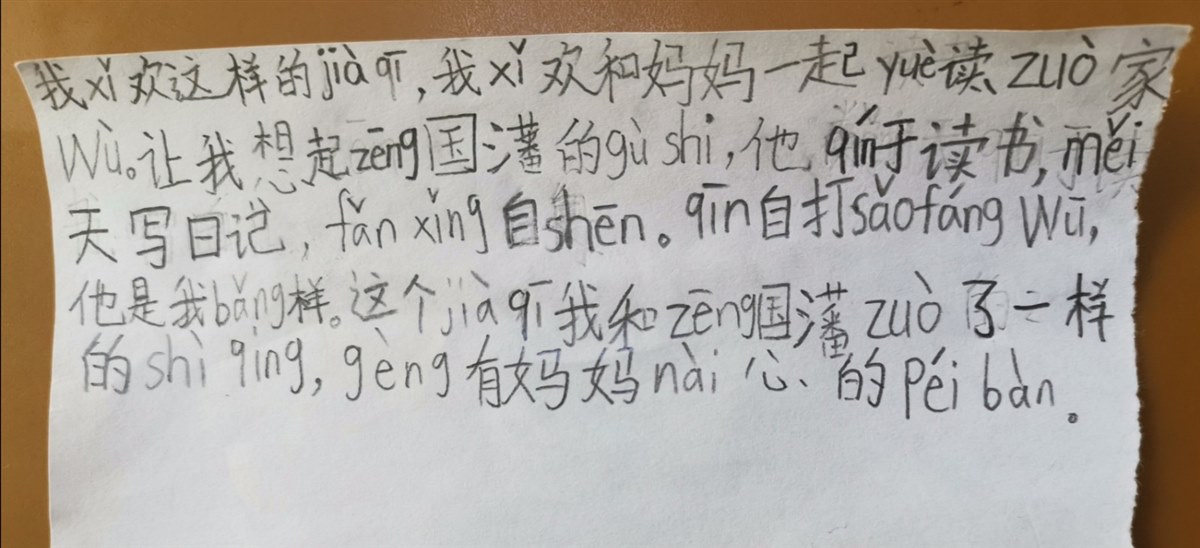 我xǐ欢这样的jià qī,我xǐ欢和妈妈一起yuè读zuò家
Wù。让我想起zēng国藩的gù shi,他qín于读书,měi
天写日记,fǎn xǐng自shēn。qīn自打sǎofáng Wū,
他是我bǎng样。这个jià qī我和zēng国藩zuò了一样
的shì qing,gèng有妈妈nài心的péi bàn。